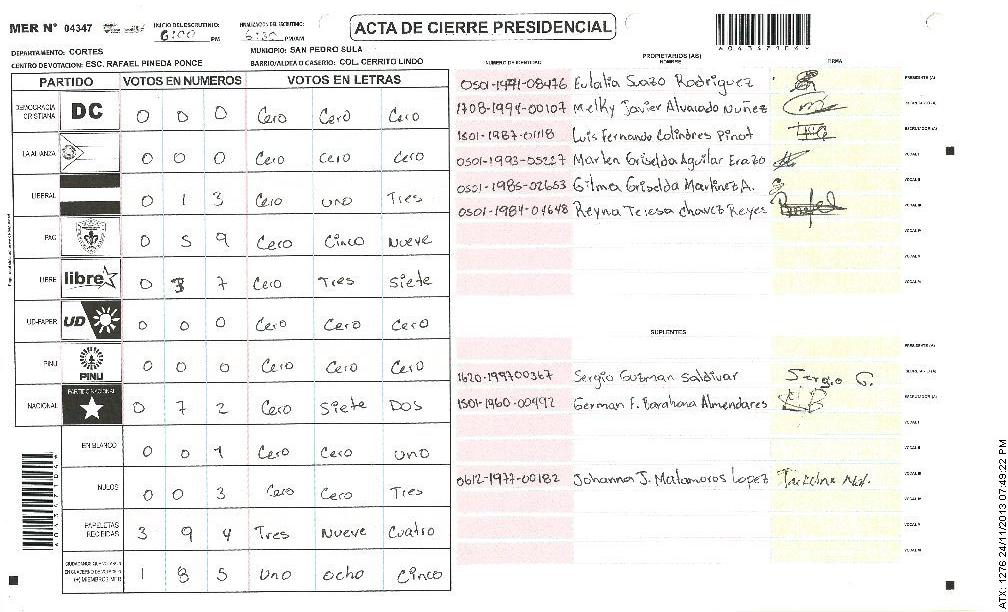 MER N° 04347 INICIO DEL ESCRUTINIO: 6:00 PM FINALIZACION DEL ESCRUTINIO: 6:30 PM/AM ACTA DE CIERRE PRESIDENCIAL
DEPARTAMENTO: CORTES MUNICIPIO: SAN PEDRO SULA
CENTRO DE VOTACION: ESC. RAFAEL PINEDA PONCE BARRIO/ALDEA O CASERIO: COL. CERRITO LINDO
NUMERO DE IDENTIDAD PROPIETARIOS (AS) FIRMA
PARTIDO VOTOS EN NUMEROS VOTOS EN LETRAS
DEMOCRACIA CRISTIANA DC 0 0 0 Cero Cero Cero
LA ALIANZA 0 0 0 Cero Cero Cero
LIBERAL 0 1 3 Cero uno Tres
PAC 0 5 9 Cero Cinco Nueve
LIBRE libre 0 3 7 Cero Tres Siete
UD-FAPER UD 0 0 0 Cero Cero Cero
PINU PINU 0 0 0 Cero Cero Cero
NACIONAL PARTIDO NACIONAL 0 7 2 Cero Siete DOS
EN BLANCO 0 0 1 Cero Cero uno
NULOS 0 0 3 Cero Cero Tres
PAPELETAS RECIBIDAS 3 9 4 Tres Nueve Cuatro
1 8 5 uno ocho Cinco
0501-1971-08476 Eulalia Sazo Rodriguez PRESIDENTE (A)
1708-1994-00107 Melky Javier Alvarado Nuñez SECRETARIO (A)
1801-1987-01118 Luis Fernando Colindres Pinot ESCRUTADOR (A)
0501-1993-05227 Marlen Griselda Aguilar Erazo VOCAL I
0501-1985-02653 Gilma Griselda Martinez A. VOCAL II
0501-1984-04648 Reyna Teresa Chavez Reyes VOCAL III
VOCAL IV
VOCAL V
VOCAL VI
SUPLENTES
PRESIDENTE (A)
1620-199700367 Sergio Guzman Saldivar Sergio G. SECRETARIO (A)
1501-1960-00492 German F. Barahona Almendares ESCRUTADOR (A)
VOCAL I
VOCAL II
0612-1977-00182 Johanna J. Matamoros Lopez VOCAL III
VOCAL IV
VOCAL V
VOCAL VI
ATX: 1276 24/11/2013 07:49:22 PM